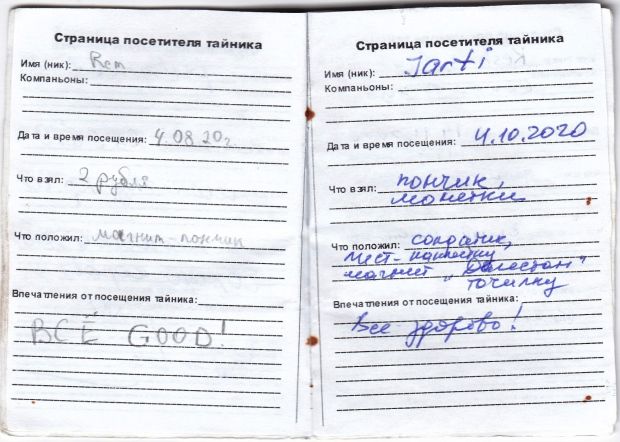 Страница посетителя тайника
Имя (ник): Rcm
Компаньоны:
Дата и время посещения: 4.08.20г
Что взял: 2 рубля
Что положил: магнит-пончик
Впечатления от посещения тайника:
ВСЁ GOOD!
Страница посетителя тайника
Имя (ник): Jarti
Компаньоны:
Дата и время посещения: 4.10.2020
Что взял: пончик,
монетки
Что положил: солдатик,
магнит "Дагестан"
точилку
Впечатления от посещения тайника:
Все здорово!